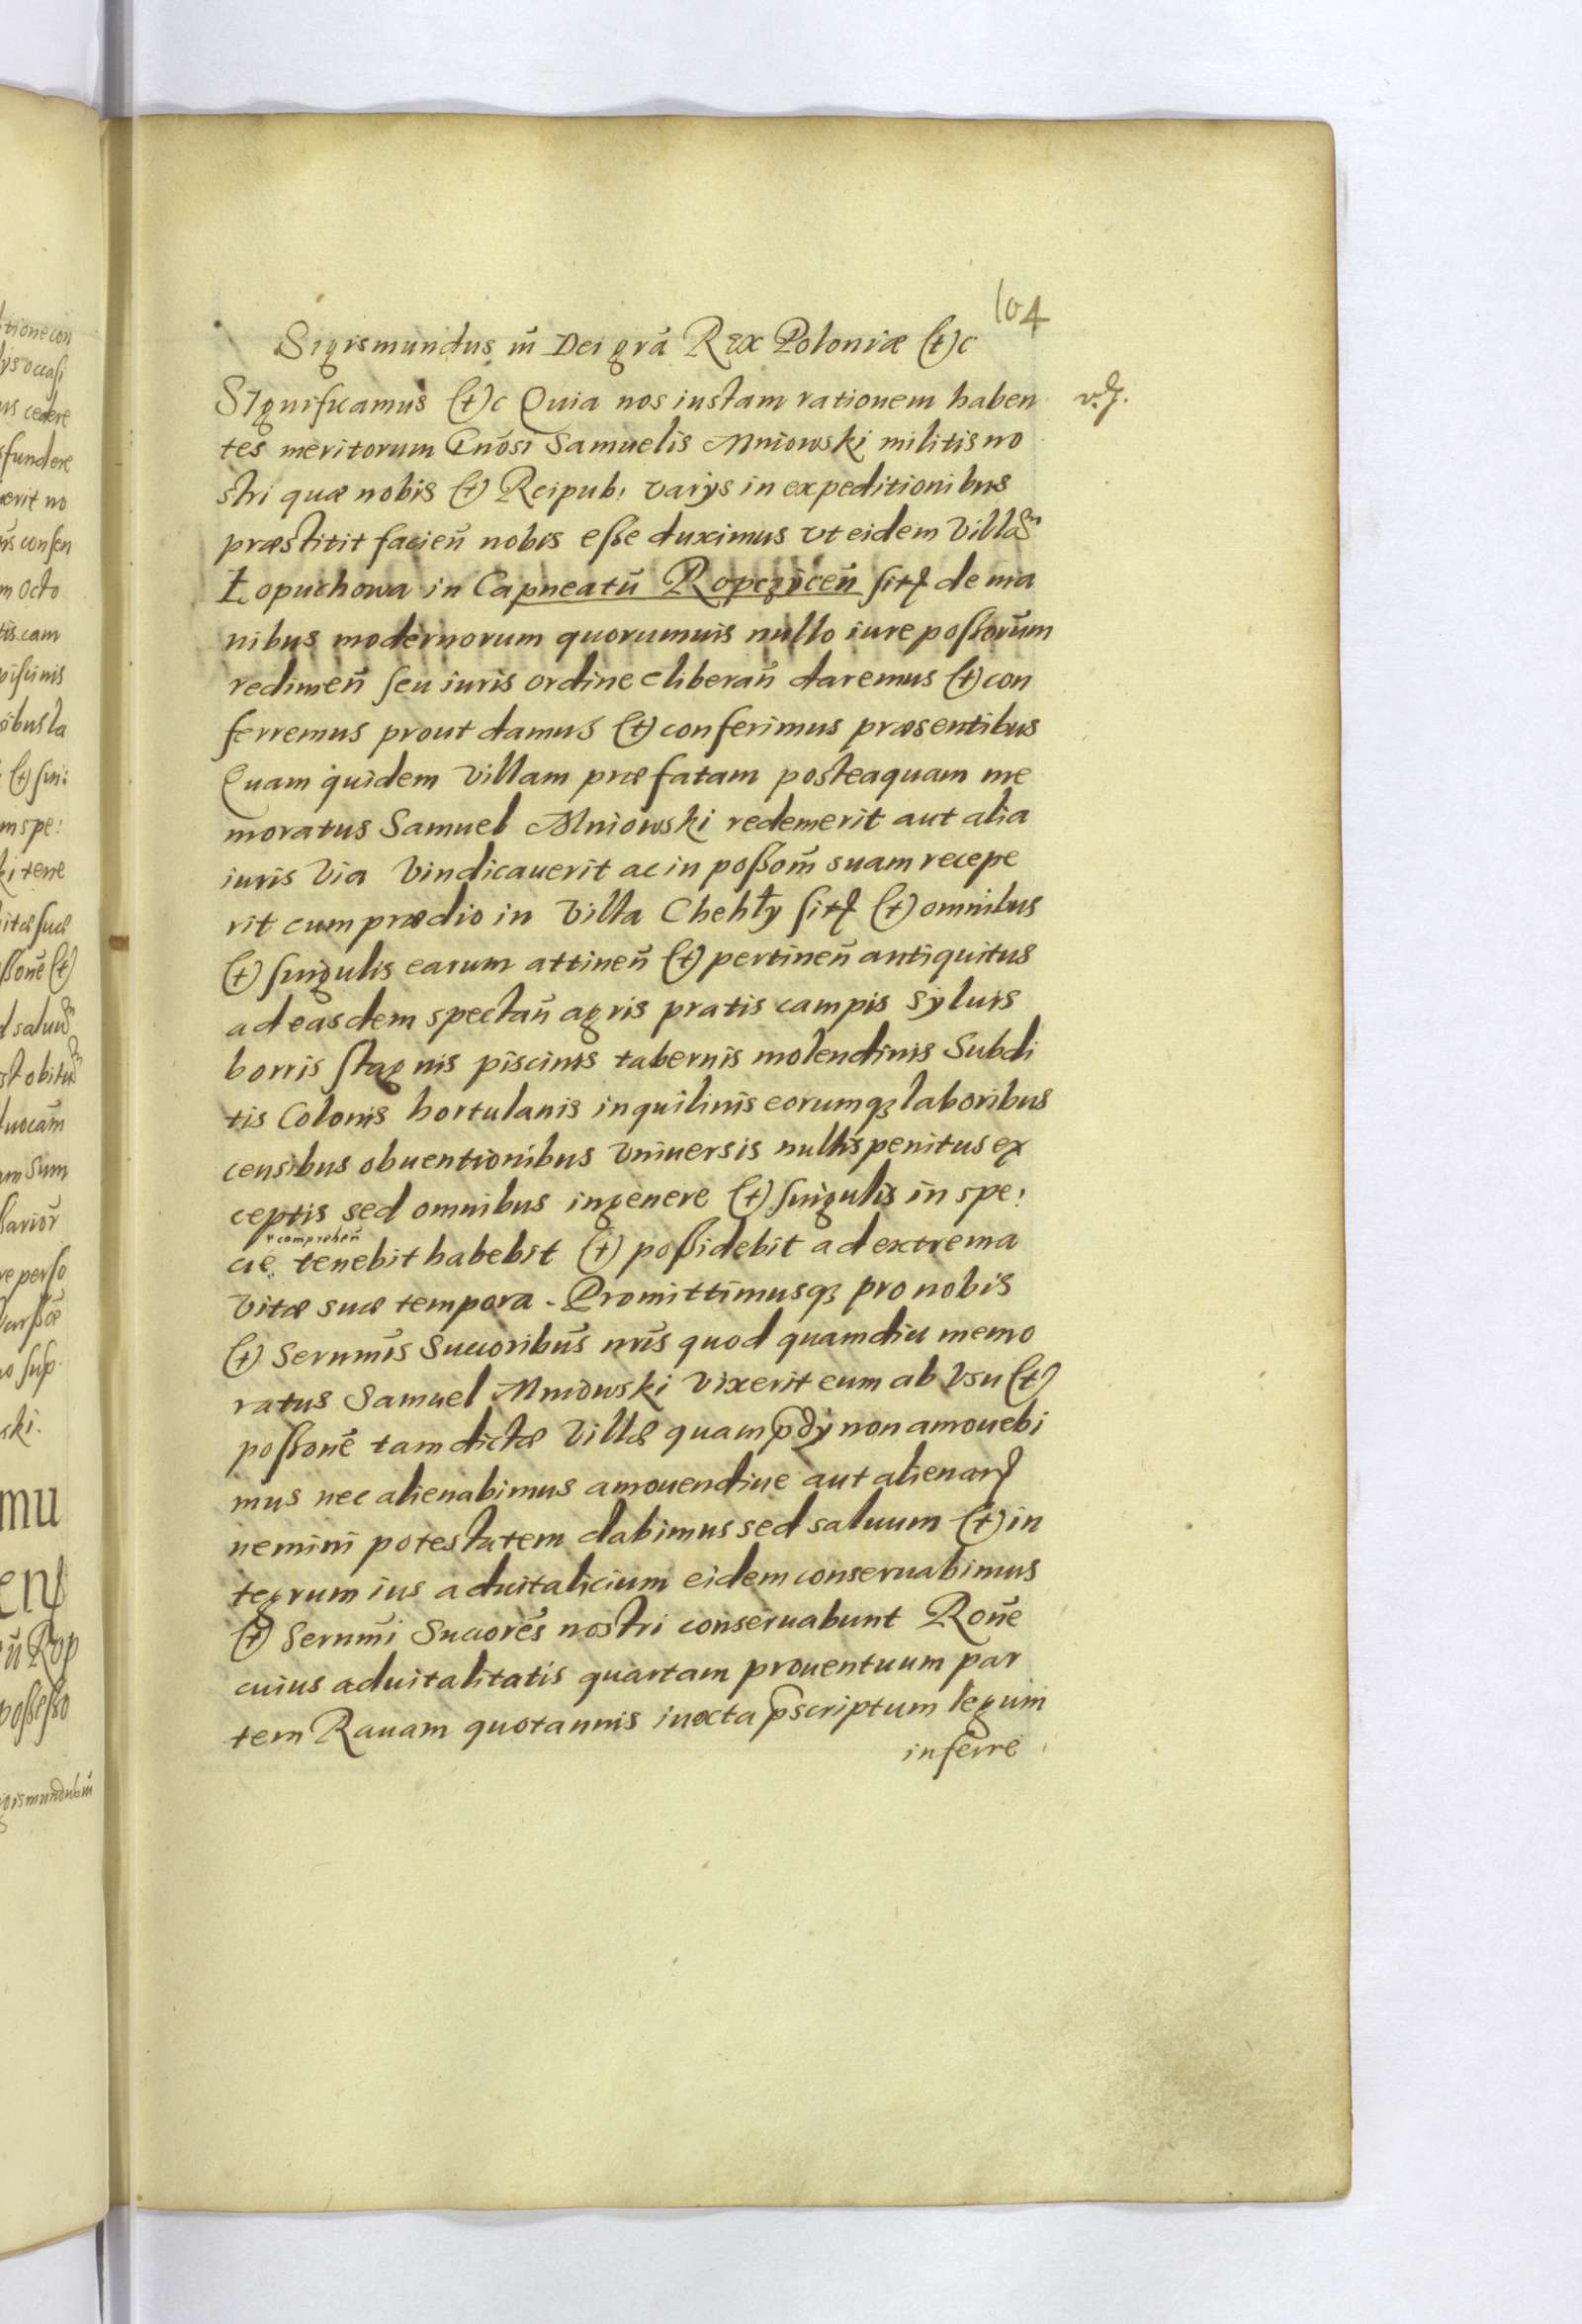 104
Sigismundus iii Dei grā Rex Poloniæ &c
Significamus &c Quia nos iustam rationem haben
v. J.
tes meritorum Gnōsi Samuelis Mniowski militis no
stri quæ nobis & Reipub: varijs in expeditionibus
præstitit facien̄ nobis eſſe duximus vt eidem Villam
Łopuchowa in Capneatū Ropczicen̄ ſitam de ma
nibus modernorum quorumuis nullo iure poſſorūm
redimen̄ ſeu iuris ordine eliberan̄ daremus & con
ferremus prout damus & conferimus præsentibus
Quam quidem Villam præfatam posteaquam me
moratus Samuel Mniowski redemerit aut alia
iuris Via Vindicauerit ac in poſſom̄ suam recepe
rit cum prædio in Villa Chehły ſitam & omnibus
& ſingulis earum attinen̄ & pertinen̄ antiquitus
ad easdem spectan̄ agris pratis campis syluis
borris ſtagnis piscinis tabernis molendinis Subdi
tis Colonis hortulanis inquilinis eorumqꝫ laboribus
censibus obuentionibus Vniuersis nullis penitus ex
ceptis sed omnibus in genere & ſingulis in spe:
comprehen̄
cie tenebit habebit & poſſidebit ad extrema
Vitæ suæ tempora. Promittimusqꝫ pro nobis
& Serenm̄is Succoribūs nr̄is quod quamdiu memo
ratus Samuel Mniowski Vixerit eum ab Vsu &
poſſonē tam dictæ Villæ quam p̄dij non amouebi
mus nec alienabimus amouendiue aut alienandi
nemini potestatem dabimus sed saluum & in
tegrum ius aduitalicium eidem conseruabimus
& Sernm̄i Succorēs nostri conseruabunt Ronē
cuius aduitalitatis quartam prouentuum par
tem Rauam quotannis iuxta p̄scriptum legum
inferre